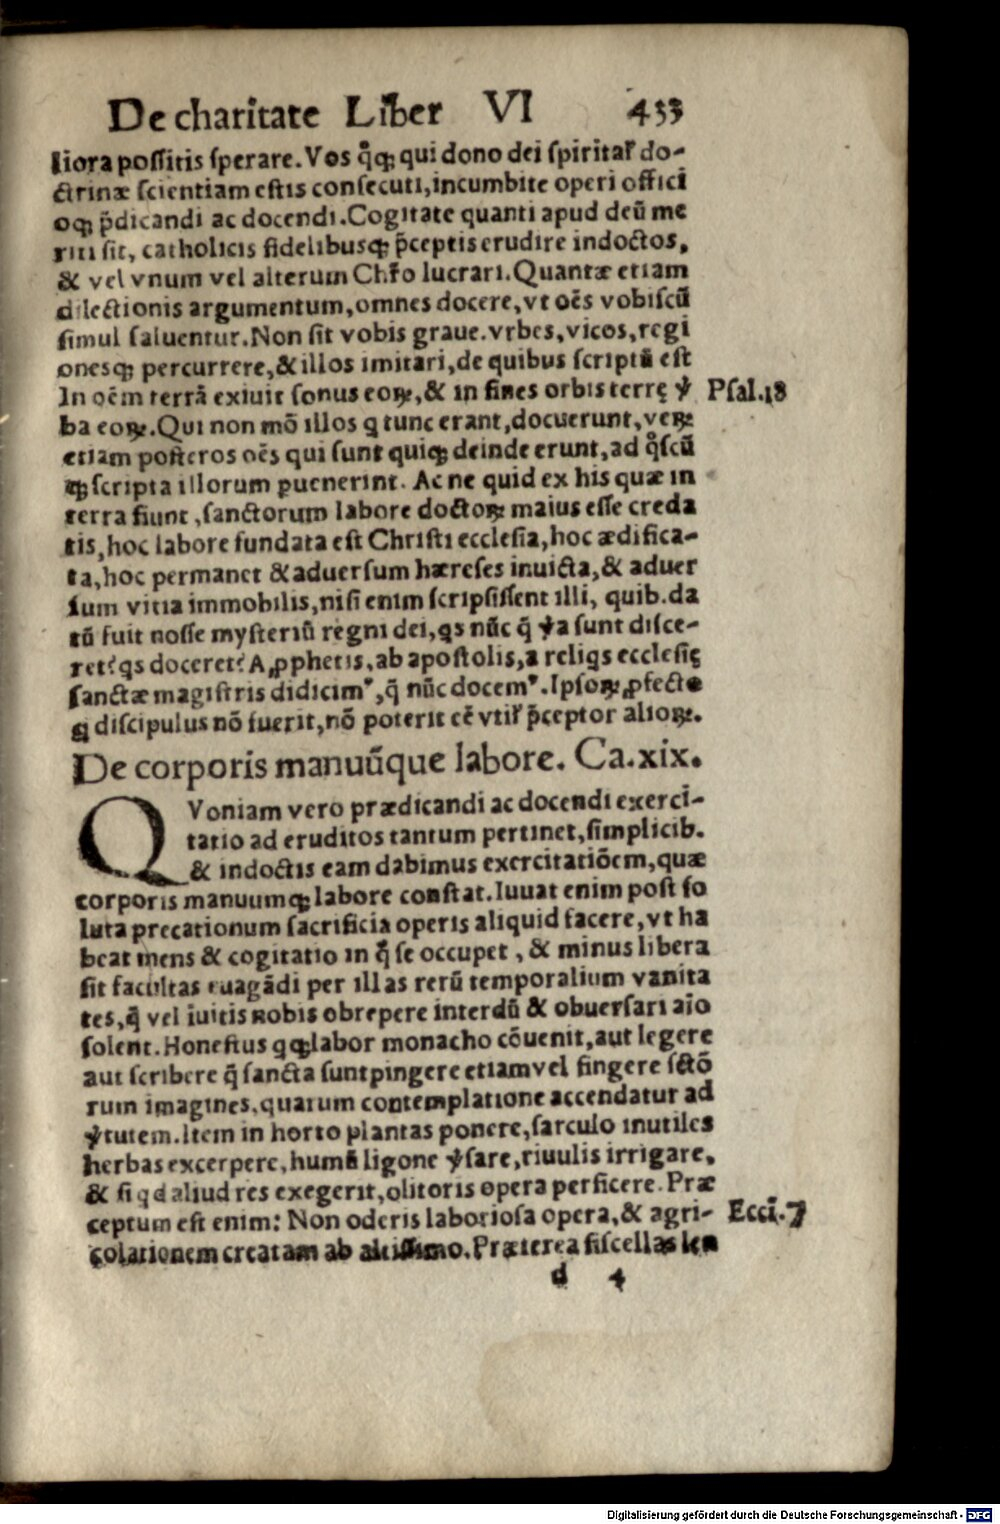 De charitate Liber VI 433
liora possitis sperare. Vos q̊q; qui dono dei spiritał do-
ctrinæ scientiam estis consecuti, incumbite operi offici
oq; p̄dicandi ac docendi. Cogitate quanti apud deū me
riti sit, catholicis fidelibusq; p̄ceptis erudire indoctos,
& vel vnum vel alterum Chřo lucrari. Quantæ etiam
dilectionis argumentum, omnes docere, vt oēs vobiscū
simul saluentur. Non sit vobis graue. vrbes, vicos, regi
onesq; percurrere, & illos imitari, de quibus scriptū est
In oēm terrā exiuit sonus eoꝝ, & in fines orbis terrę v̓
Psal.18
ba eoꝝ. Qui non mō illos q tunc erant, docuerunt, veꝝ
etiam posteros oēs qui sunt quiq; deinde erunt, ad q̊scū
q; scripta illorum ꝑuenerint. Ac ne quid ex his quæ in
terra fiunt, sanctorum labore doctoꝝ maius esse creda
tis, hoc labore fundata est Christi ecclesia, hoc ædifica-
ta, hoc permanet & aduersum hæreses inuicta, & aduer
sum vitia immobilis, nisi enim scripsissent illi, quib. da
tū fuit nosse mysteriū regni dei, qs nūc q̄ v̓a sunt disce-
ret? qs doceret? A ꝓphetis, ab apostolis, a religs ecclesię
sanctæ magistris didicimꝰ, q̄ nūc docemꝰ. Ipsoꝝ ꝓfecto
q discipulus nō fuerit, nō poterit cē vtił p̄ceptor alioꝝ.
De corporis manuūque labore. Ca.xix.
QVoniam vero prædicandi ac docendi exerci-
tatio ad eruditos tantum pertinet, simplicib.
& indoctis eam dabimus exercitatiōem, quæ
corporis manuumq; labore constat. Iuuat enim post so
luta precationum sacrificia operis aliquid facere, vt ha
beat mens & cogitatio in q̊ se occupet, & minus libera
sit facultas euagādi per illas rerū temporalium vanita
tes, q̄ vel iuitis nobis obrepere interdū & obuersari aīo
solent. Honestus qq; labor monacho cōuenit, aut legere
aut scribere q̄ sancta sunt pingere etiam vel fingere sctō
rum imagines, quarum contemplatione accendatur ad
v̓tutem. Item in horto plantas ponere, sarculo inutiles
herbas excerpere, humū ligone v̓sare, riuulis irrigare,
& si qd aliud res exegerit, olitoris opera perficere. Præ
ceptum est enim: Non oderis laboriosa opera, & agri-
Eccī.7
colationem creatam ab altissimo. Præterea fiscellas len
d 4
Digitalisierung gefördert durch die Deutsche Forschungsgemeinschaft - DFG